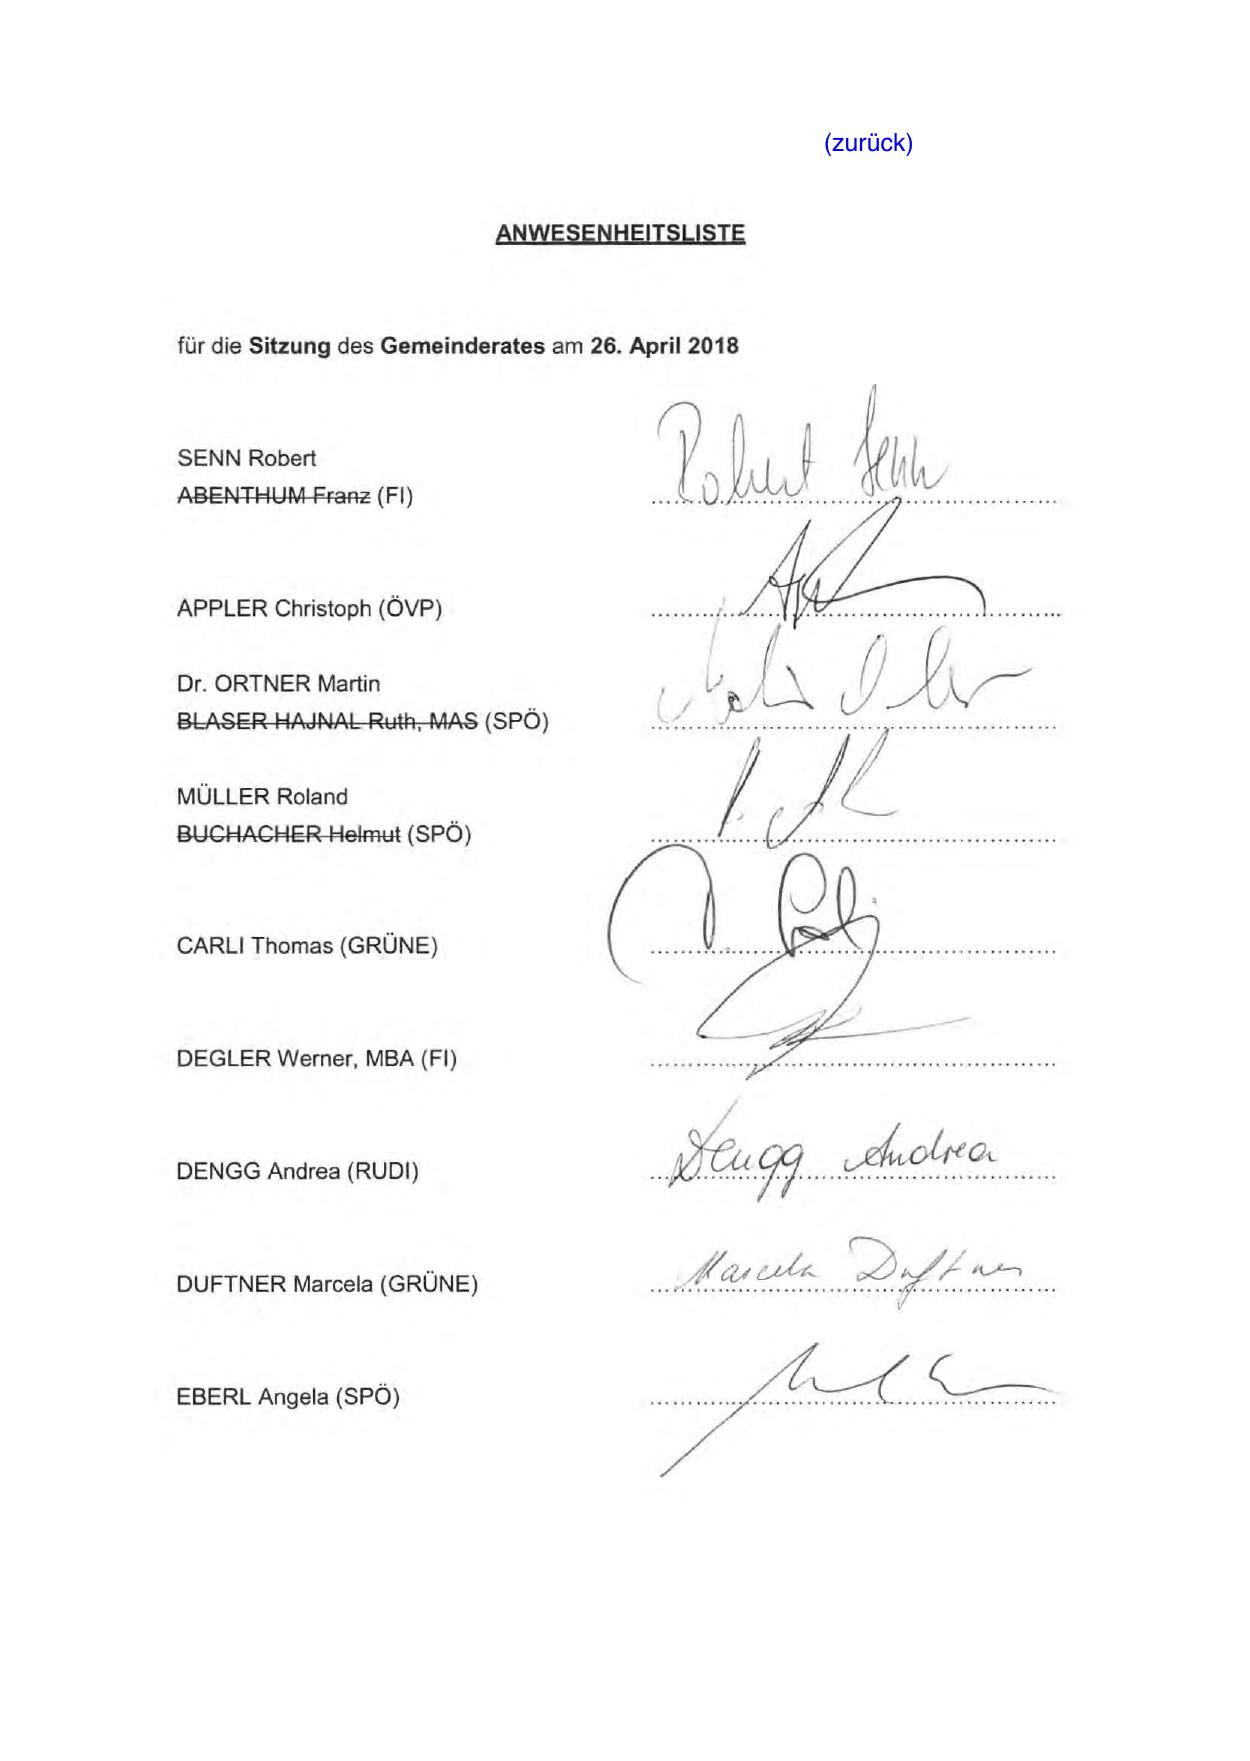 (zurück)
ANWESENHEITSLISTE
für die Sitzung des Gemeinderates am 26. April 2018
SENN Robert
ABENTHUM Franz (FI)
Robert Senn
APPLER Christoph (ÖVP)
Dr. ORTNER Martin
BLASER HAJNAL Ruth, MAS (SPÖ)
MÜLLER Roland
BUCHACHER Helmut (SPÖ)
CARLI Thomas (GRÜNE)
DEGLER Werner, MBA (FI)
DENGG Andrea (RUDI)
Dengg Andrea
DUFTNER Marcela (GRÜNE)
Marcela Duftner
EBERL Angela (SPÖ)